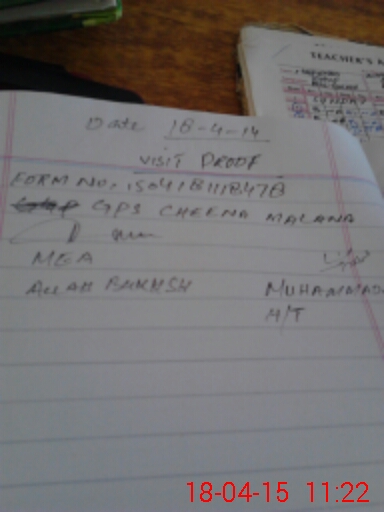 TEACHER'S A
Date 18-4-14
VISIT PROOF
FORM NO: 1504181118478
GPS CHEENA MALANA
MEA
ALLAH BAKHSH MUHAMMAD
H/T
18-04-15 11:22